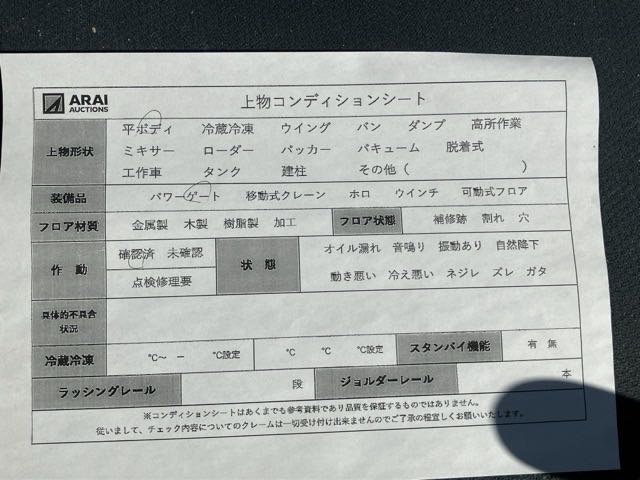 ARAI
AUCTIONS
上物コンディションシート
上物形状
平ボディ 冷蔵冷凍 ウイング バン ダンプ 高所作業
ミキサー ローダー パッカー バキューム 脱着式
工作車 タンク 建柱 その他( )
装備品 パワーゲート 移動式クレーン ホロ ウインチ 可動式フロア
フロア材質 金属製 木製 樹脂製 加工 フロア状態 補修跡 割れ 穴
作動 確認済 未確認
点検修理要
状態 オイル漏れ 音鳴り 振動あり 自然降下
動き悪い 冷え悪い ネジレ ズレ ガタ
具体的不具合
状況
冷蔵冷凍 ℃～ － ℃設定 ℃ ℃ ℃設定 スタンバイ機能 有 無
ラッシングレール 段 ジョルダーレール 本
※コンディションシートはあくまでも参考資料であり品質を保証するものではありません。
従いまして、チェック内容についてのクレームは一切受け付け出来ませんのでご了承の程宜しくお願いいたします。